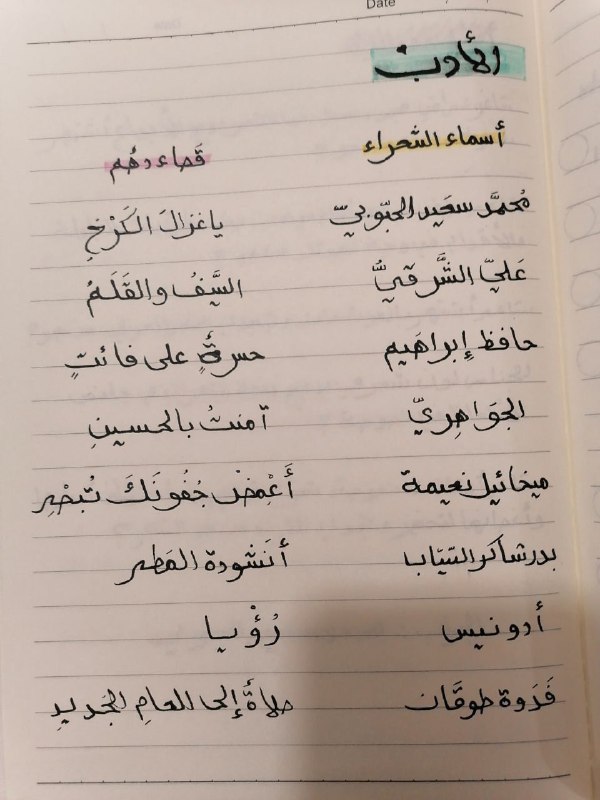 Date
الأدب
أسماء الشعراء قصاءدهم
مُحمَّد سعَيد الحبّوبيّ ياغزالَ الكَرْخِ
عَليّ الشَّرقيُّ السَّيفُ والقَلَمُ
حافظ إبراهَيم حسرةٌ على فائتٍ
الجَواهِريّ آمنتُ بالحسينِ
ميخائيل نعيمة أَغْمِضْ جُفُونَكَ تُبصْرِ
بدر شاكر السيّاب أنَشودة المَطر
أدونيس رُؤْيا
فَدَوة طوقَان صلاةٌ إلى العامِ الجَديدِ